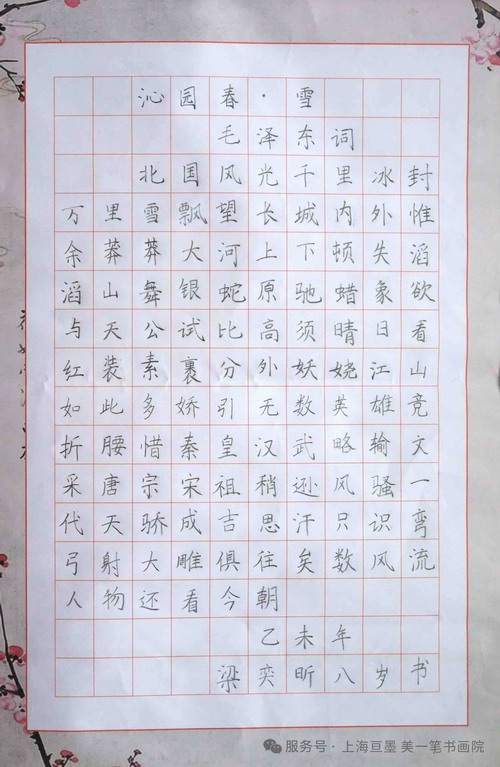 沁园春·雪
毛泽东词
北国风光千里冰封
万里雪飘望长城内外惟
余莽莽大河上下顿失滔
滔山舞银蛇原驰蜡象欲
与天公试比高须晴日看
红装素裹分外妖娆江山
如此多娇引无数英雄竞
折腰惜秦皇汉武略输文
采唐宗宋祖稍逊风骚一
代天骄成吉思汗只识弯
弓射大雕俱往矣数风流
人物还看今朝
乙未年
梁奕昕八岁书
服务号·上海亘墨 美一笔书画院